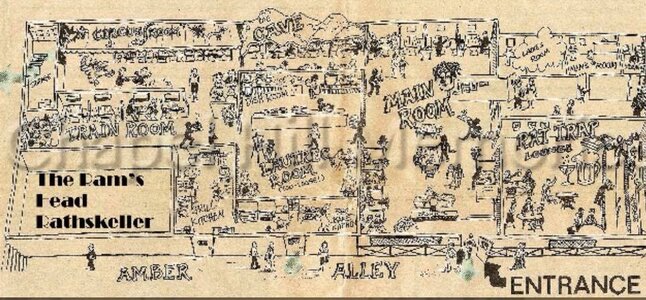 CIRCUS ROOM
the
CAVE
LADIES
ROOM
MEN'S ROOM
MAIN
ROOM
TRAIN ROOM
RAT TRAP
LOUNGE
ROOM
KITCHEN
The Ram's
Head
Rathskeller
AMBER ALLEY
ENTRANCE